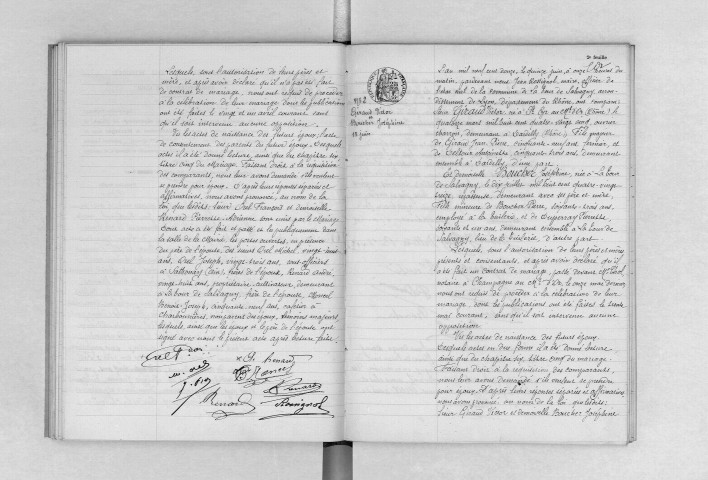 Lesquels, sous l'autorisation de leurs pères et
mère, et après avoir déclaré qu'il n'a pas été fait
de contrat de mariage, nous ont requis de procéder
à la célébration de leur mariage dont les publications
ont été faites le vingt et un avril courant, sans
qu'il soit intervenu aucune opposition.
Vu les actes de naissance des futurs époux, l'acte
de consentement des parents du futur époux, desquels
actes il a été donné lecture, ainsi que du chapitre six,
livre cinq du mariage. Faisant droit à la réquisition
des comparants, nous leur avons demandé s'ils veulent
se prendre pour époux. D'après leurs réponses séparées et
affirmatives, nous avons prononcé, au nom de la
loi, que lesdits, sieur Orel François et demoiselle
Renard Pierrette Antoinine sont unis par le mariage
Dont acte a été fait et passé et lu publiquement dans
la salle de la Mairie, les portes ouvertes, en présence
des père de l'épouse, des sieurs Orel Michel, vingt-huit
ans, Orel Joseph, vingt-trois ans,
frères de l'époux, Renard André,
vingt-huit ans, propriétaire, cultivateur, demeurant
à la Tour de Salvagny, frère de l'épouse,
Benoît Joseph, ans, cafetier à
Charbonnières, témoins majeurs,
lesquels, ainsi que les époux et le père de l'épouse ont
signé avec nous le présent acte après lecture faite.
J. Renard
Renard
Renard
Rossignol
2e feuille
N° 2
Giraud Victor
et
Boucher Joséphine
15 juin
L'an mil neuf cent douze, le quinze juin, à onze heures du
matin, pardevant nous Jean Rossignol, maire, officier de
l'état civil de la commune de La Tour de Salvagny, arron-
dissement de Lyon, département du Rhône, ont comparu:
Sieur Giraud Victor, né à St Cyr au Mt d'Or (Rhône) le
quatorze août mil huit cent quatre-vingt-sept, ouvrier
charron, demeurant à Dardilly, Rhône, Fils majeur
de Giraud Jean Pierre, cinquante-neuf ans, fermier, et
de Antoinette, cinquante-trois ans, demeurant
ensemble à Dardilly, d'une part.
Et demoiselle Boucher Joséphine, née à La Tour
de Salvagny, le dix juillet mil huit cent quatre-vingt-
treize, repasseuse, demeurant avec ses père et mère,
Fille mineure de Boucher Pierre, soixante-trois ans,
employé à la tuilerie, et de Duperray
soixante et un ans, demeurant ensemble à La Tour de
Salvagny, lieu de la tuilerie, d'autre part.
Lesquels, sous l'autorisation de leurs pères et mères
présents et consentants, et après avoir déclaré qu'il
a été fait un contrat de mariage, passé devant Me
notaire à Champagne au Mt d'Or, le onze mai dernier,
nous ont requis de procéder à la célébration de leur
mariage dont les publications ont été faites le
mai courant, sans qu'il soit intervenu aucune
opposition.
Vu les actes de naissance des futurs époux,
desquels actes il a été donné lecture
ainsi que du chapitre six, titre cinq du mariage.
Faisant droit à la réquisition des comparants,
nous leur avons demandé s'ils veulent se prendre
pour époux. D'après leurs réponses séparées et affirmatives
nous avons prononcé, au nom de la loi, que lesdits:
sieur Giraud Victor et demoiselle Boucher Joséphine